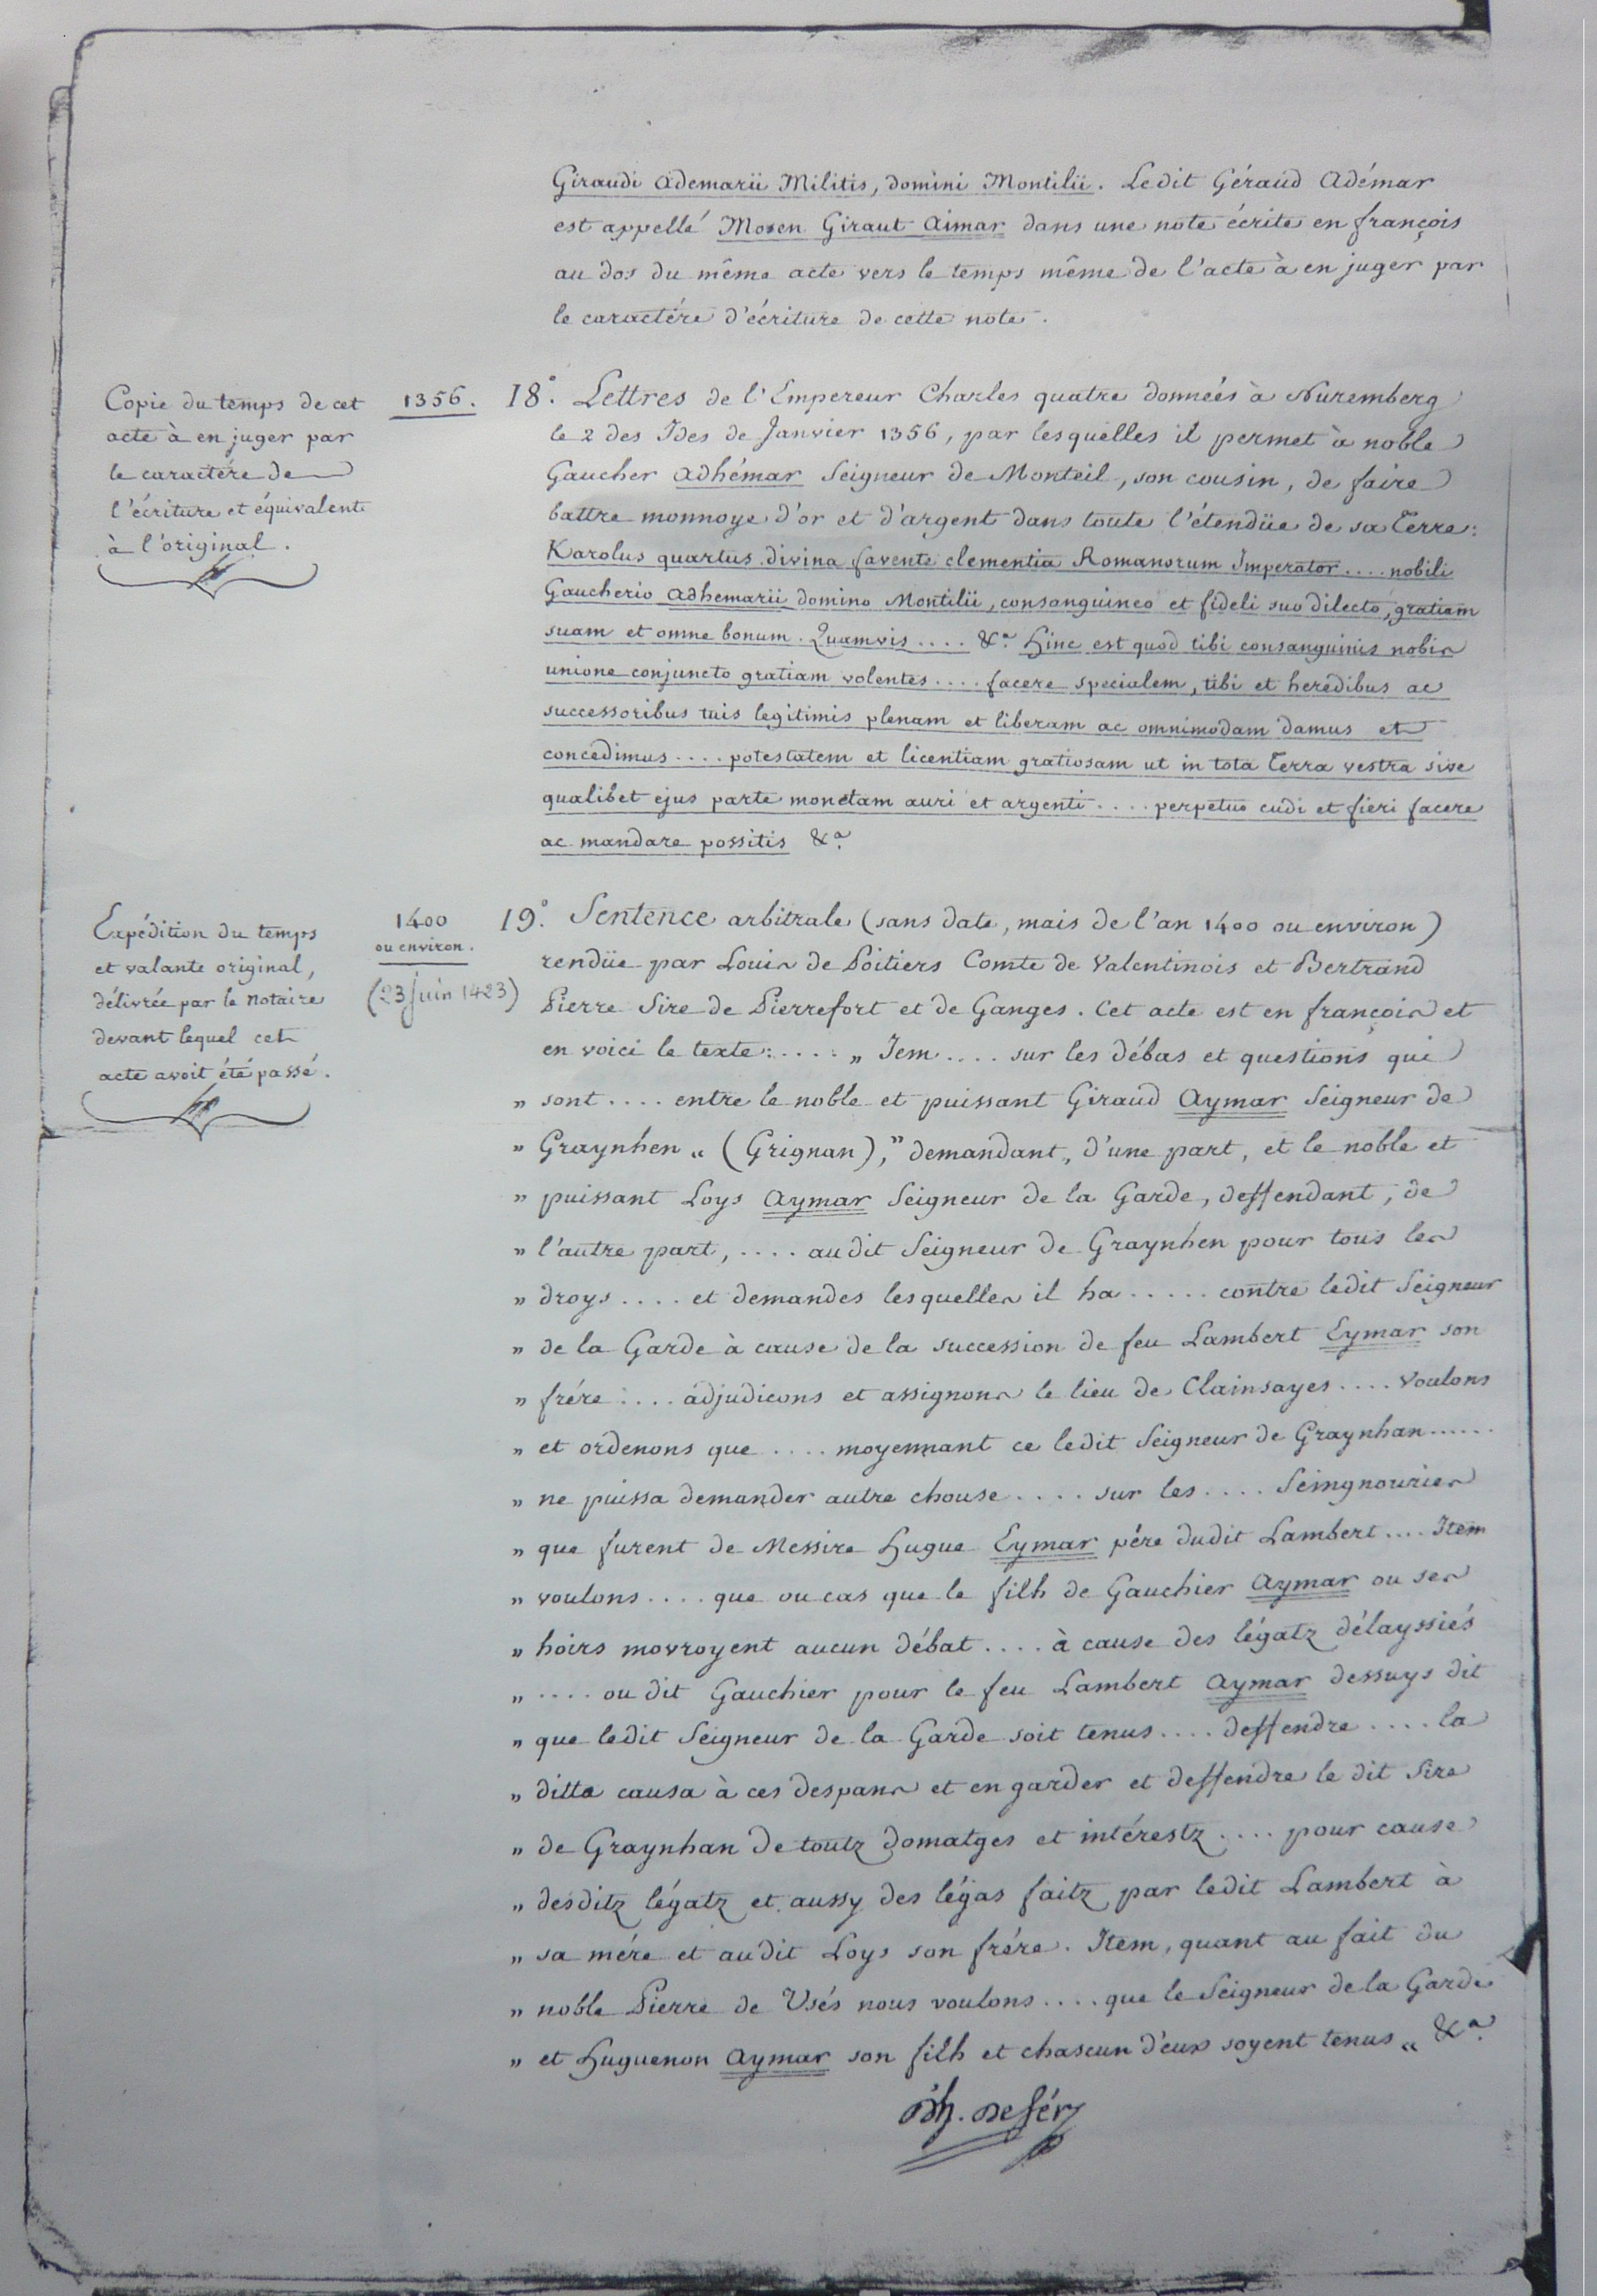 Giraudi Ademarii Militis, domini Montilii. Ledit Géraud Adémar
est appellé Mosen Giraut Aimar dans une note écrite en françois
au dos du même acte vers le temps même de l'acte à en juger par
le caractére d'écriture de cette note.
Copie du temps de cet
acte à en juger par
le caractére de
l'écriture et équivalent
à l'original.
1356.
18°. Lettres de l'Empereur Charles quatre données à Nuremberg
le 2 des Ides de Janvier 1356, par lesquelles il permet à noble
Gaucher Adhémar Seigneur de Monteil, son cousin, de faire
battre monnoye d'or et d'argent dans toute l'étendüe de sa Terre:
Karolus quartus divina favente clementia Romanorum Imperator .... nobili
Gaucherio Adhemarii domino Montilii, consanguineo et fideli suo dilecto, gratiam
suam et omne bonum. Quamvis .... &a. Hinc est quod tibi consanguinis nobis
unione conjuncto gratiam volentes .... facere specialem, tibi et heredibus ac
successoribus tuis legitimis plenam et liberam ac omnimodam damus et
concedimus .... potestatem et licentiam gratiosam ut in tota Terra vestra sive
qualibet ejus parte monetam auri et argenti .... perpetuo cudi et fieri facere
ac mandare possitis &a.
Expédition du temps
et valante original,
délivrée par le Notaire
devant lequel cet
acte avoit été passé.
1400
ou environ.
(23 juin 1423)
19°. Sentence arbitrale (sans date, mais de l'an 1400 ou environ)
rendüe par Louis de Poitiers Comte de Valentinois et Bertrand
Pierre Sire de Pierrefort et de Ganges. Cet acte est en françois et
en voici le texte: .... „ Jem .... sur les débas et questions qui
„ sont .... entre le noble et puissant Giraud Aymar Seigneur de
„ Graynhen „ (Grignan), " demandant, d'une part, et le noble et
„ puissant Loys Aymar Seigneur de la Garde, deffendant, de
„ l'autre part, .... audit Seigneur de Graynhen pour tous les
„ droys .... et demandes lesquelles il ha ..... contre ledit Seigneur
„ de la Garde à cause de la succession de feu Lambert Eymar son
„ frére: .... adjudicons et assignons le lieu de Clainsayes .... Voulons
„ et ordenons que .... moyennant ce ledit Seigneur de Graynhan ......
„ ne puissa demander autre chouse .... sur les .... Seingnouries
„ que furent de Messire Hugue Eymar pére dudit Lambert .... Item
„ voulons .... que ou cas que le filh de Gauchier Aymar ou ses
„ hoirs movroyent aucun débat .... à cause des légatz délayssiés
„ .... ou dit Gauchier pour le feu Lambert Aymar dessuys dit
„ que ledit Seigneur de la Garde soit tenus .... deffendre .... la
„ ditta causa à ces despans et en garder et deffendre le dit Sire
„ de Graynhan de toutz domatges et intérestz .... pour cause
„ desditz légatz et aussy des légas faitz par ledit Lambert à
„ sa mére et audit Loys son frére. Item, quant au fait du
„ noble Pierre de Usés nous voulons .... que le Seigneur de la Garde
„ et Huguenon Aymar son filh et chascun d'eux soyent tenus „ &a.